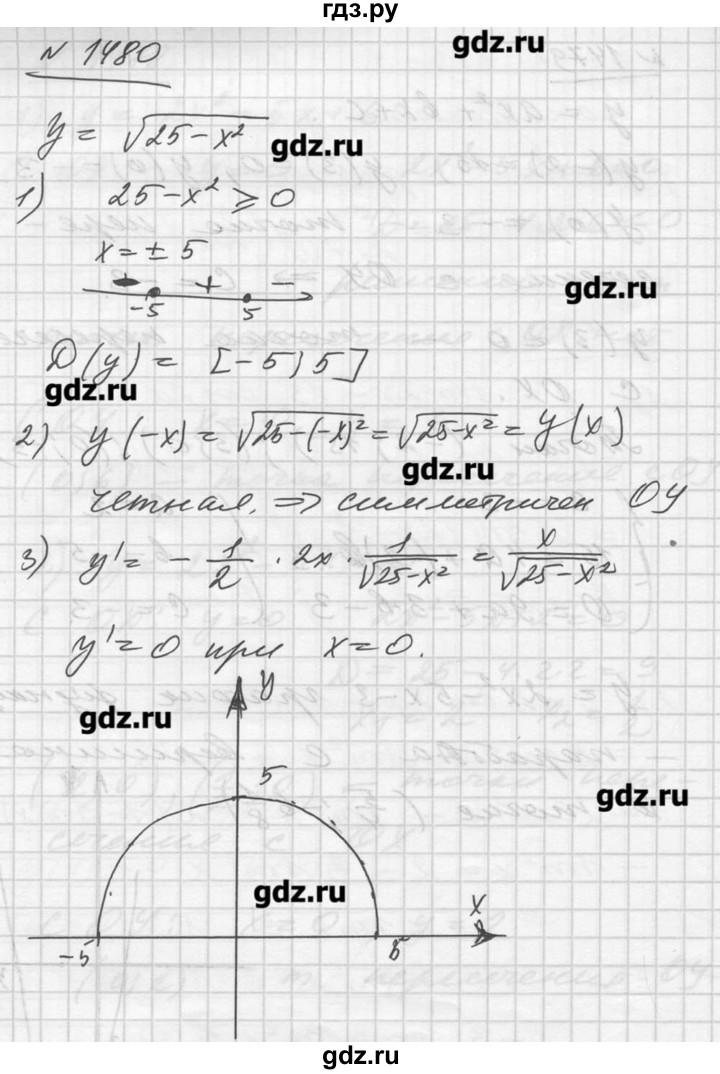 гдз.ру
gdz.ru
N 1480
y = √25-x²
gdz.ru
1) 25-x² ⩾ 0
x = ± 5
gdz.ru
- + -
-5 5
D(y) = [-5; 5]
gdz.ru
2) y(-x) = √25-(-x)² = √25-x² = y(x)
gdz.ru
четная. ⇒ симметричен OY
3) y' = - 1/2 · 2x · 1/√25-x² = x/√25-x²
y' = 0 при x = 0.
y
gdz.ru
5
gdz.ru
gdz.ru
x
-5 5
gdz.ru